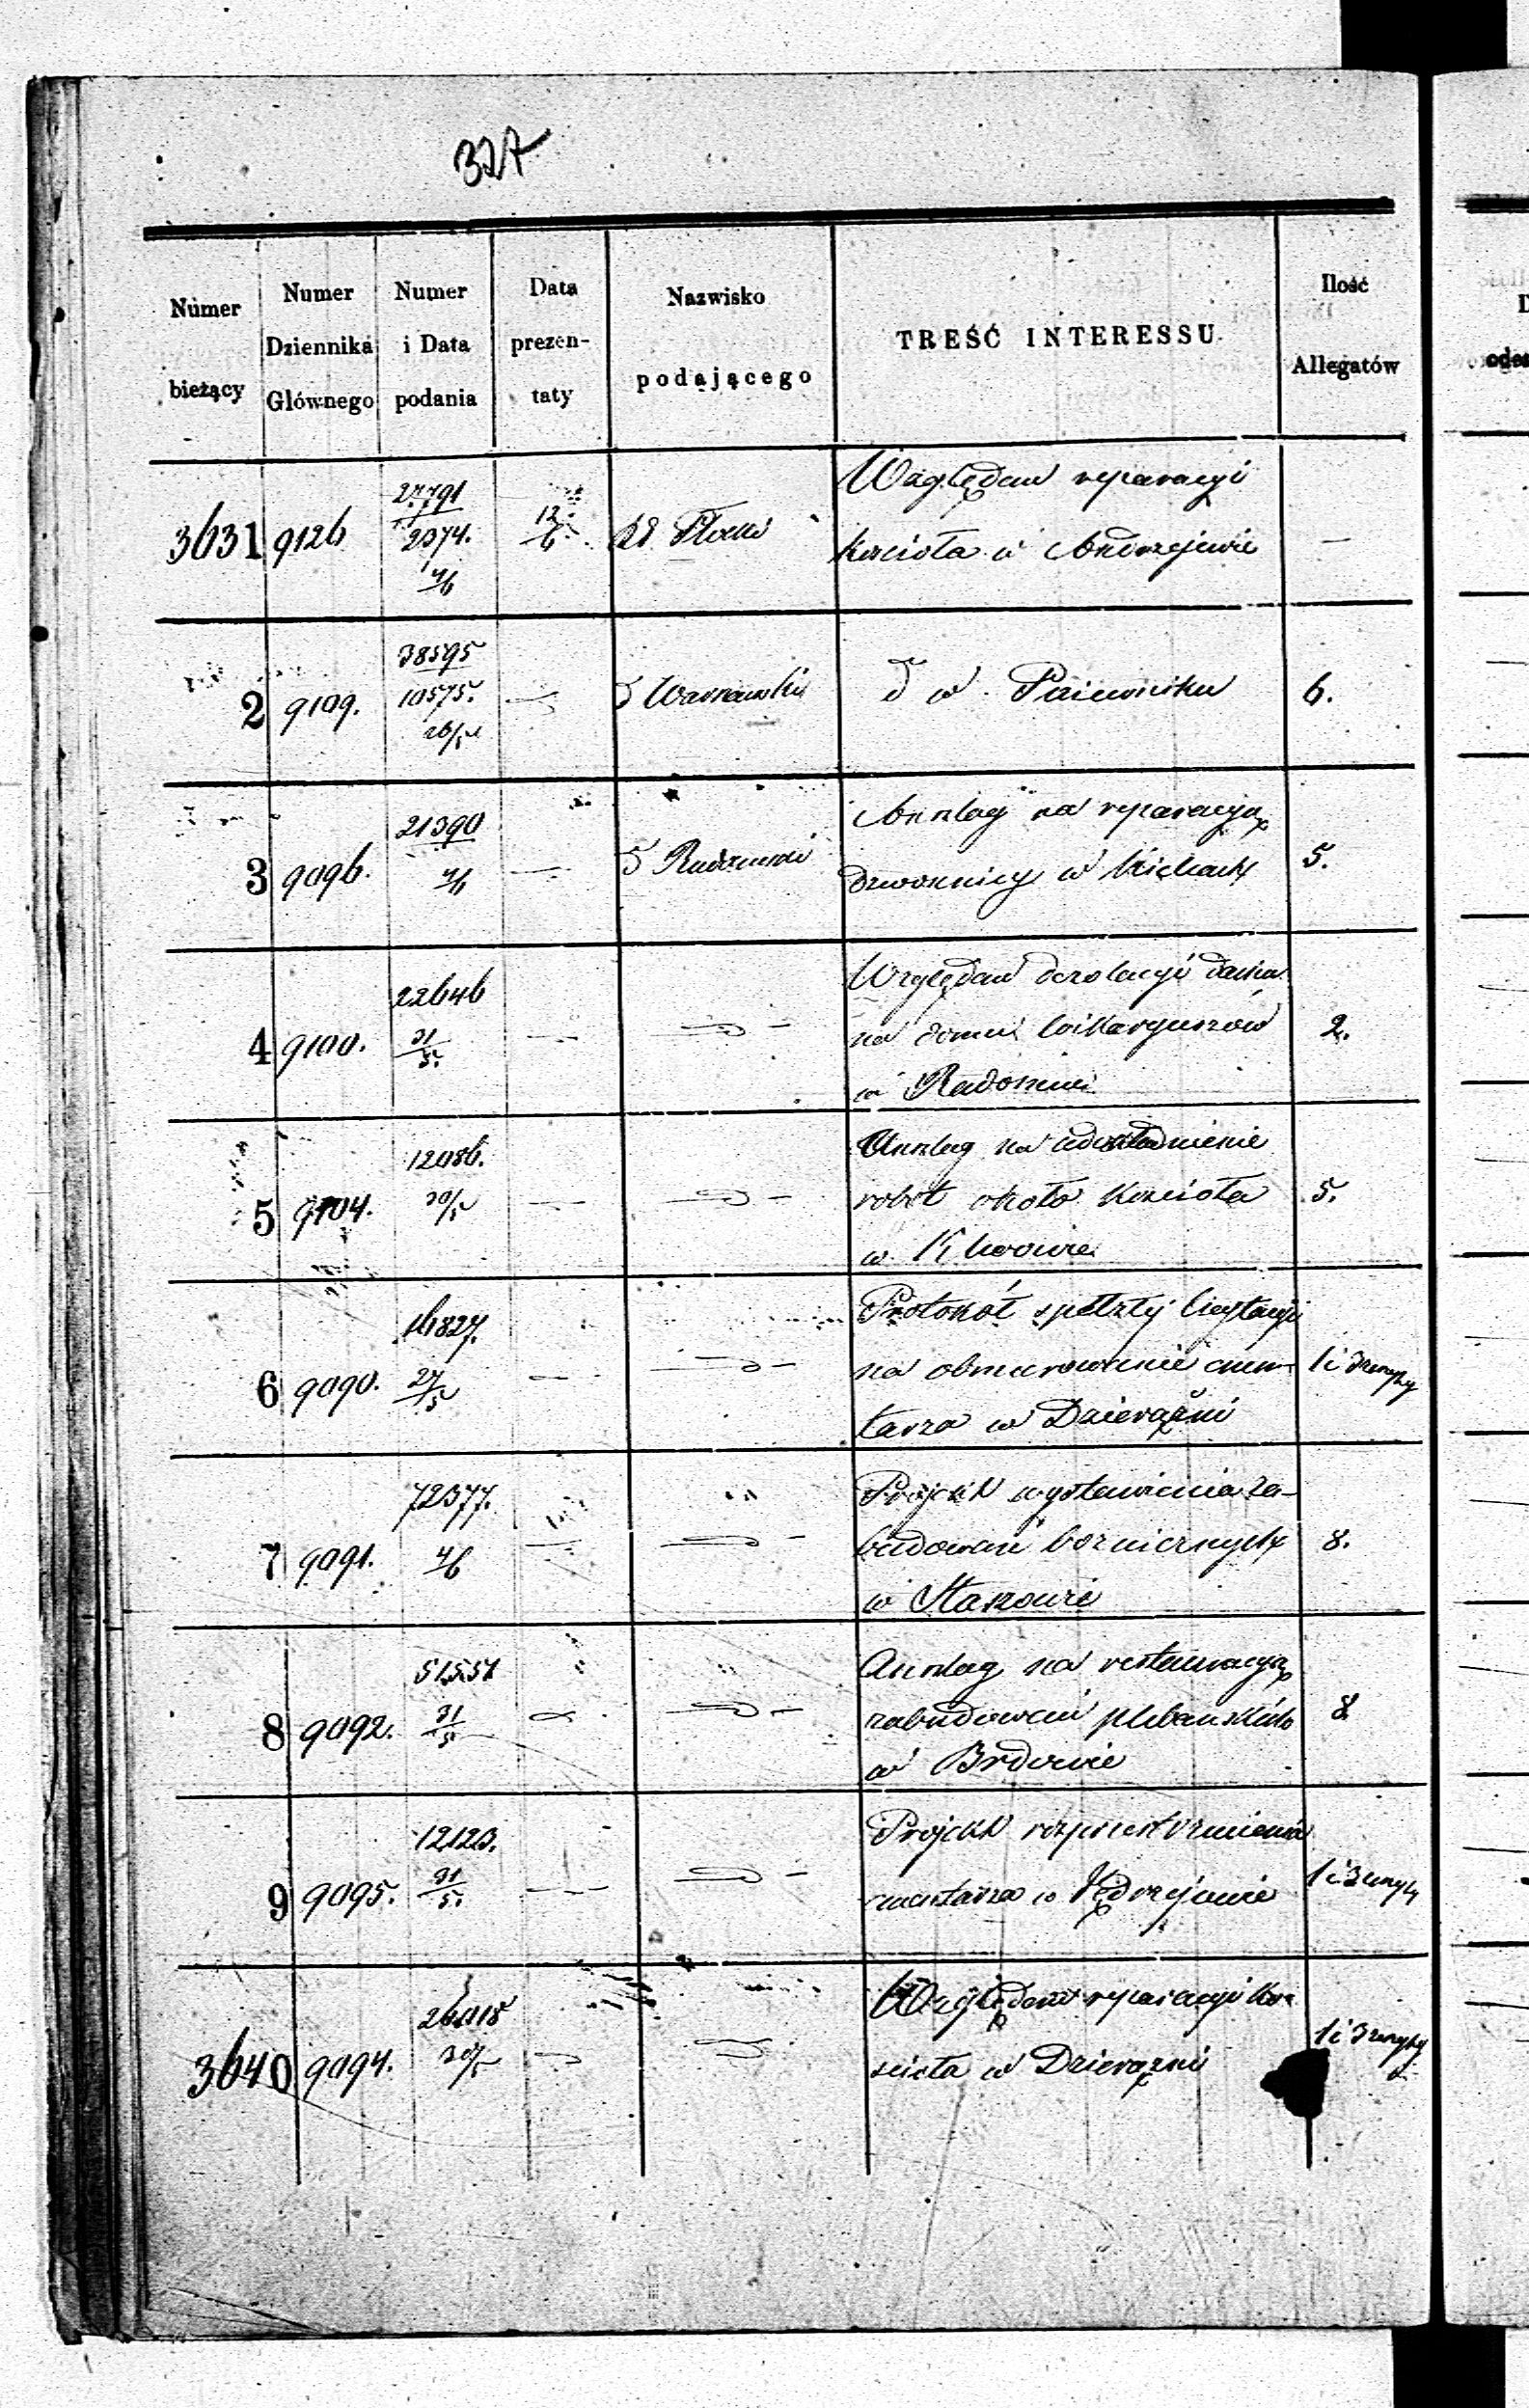 327
Numer bieżący | Numer Dziennika Głównego | Numer i Data podania | Data prezentaty | Nazwisko podającego | TREŚĆ INTERESSU | Ilość Allegatów
3631 | 9126 | 27791 / 2374. 4/6 | 12/6 | Płocki | Względem reparacyi
kościoła w Andrzejewie | —
2 | 9109. | 38595 / 10575. 26/5 | — | Warszawski | d w Pniewniku | 6.
3 | 9096. | 21390 4/6 | — | Radomski | Anszlag na reparacyą
dzwonnicy w Kielcach | 5.
4 | 9100. | 22646 31/5. | — | — | Względem dezolacyi
na domu Wikaryuszów
w Radomiu | 2.
5 | 9104. | 12086. 30/5 | — | — | Anszlag na
robót około Kościoła
w Klwowie | 5.
6 | 9090. | 16827. 27/5 | — | — | Protokół spełzłej licytacyi
na obmurowanie cmen-
tarza w Dzierążni | 1 i 3 zeszyty
7 | 9091. | 72377. 4/6 | — | — | Projekt wystawienia za-
budowań bożnicznych
w Staszowie | 8.
8 | 9092. | 51557 31/5 | — | — | Anszlag na restauracyą
zabudowań plebańskich
w Brdowie | 8
9 | 9095. | 12123. 31/5. | — | — | Projekt rozprzestrzenienia
cmentarza w Jędrzejowie | 1 i 3 zeszyty
3640 | 9094. | 26018 30/5 | — | — | Względem reparacyi Ko-
ścioła w Dzierążni | 1 i 3 zeszyty